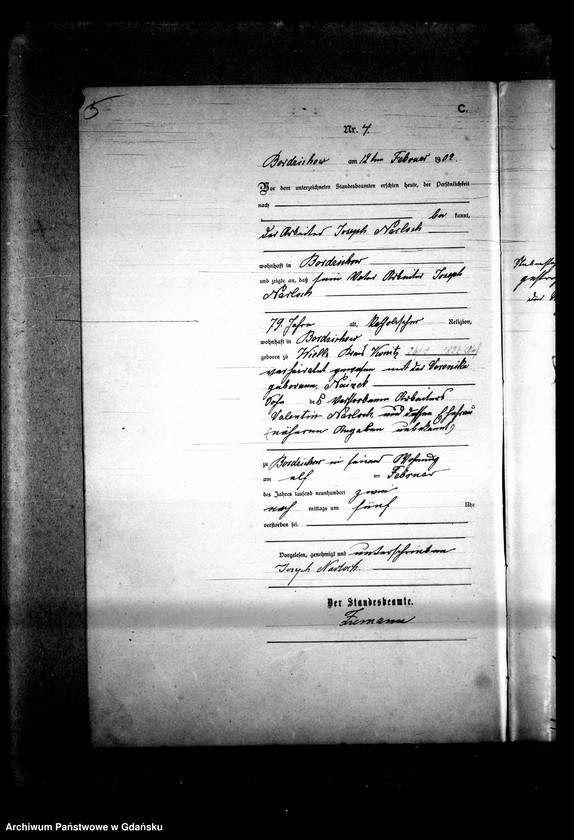 5
C.
Nr. 7.
Bordzichow am 12ten Februar 1902.
Vor dem unterzeichneten Standesbeamten erschien heute, der Persönlichkeit
nach
be kannt,
der Arbeiter Joseph Narloch
wohnhaft in Bordzichow
und zeigte an, daß sein Vater Arbeiter Joseph
Narloch
79 Jahre alt, katholischer Religion,
wohnhaft in Bordzichow
geboren zu Kreis Konitz
verheirathet gewesen mit der Veronika
geborenen
Sohn des verstorbenen Arbeiters
Valentin Narloch und dessen Ehefrau
(nähere Angaben unbekannt)
zu Bordzichow in seiner Wohnung
am elf ten Februar
des Jahres tausend neunhundert zwei
nach mittags um fünf Uhr
verstorben sei.
Vorgelesen, genehmigt und unterschrieben
Joseph Narloch.
Der Standesbeamte.
Ziemann
Archiwum Państwowe w Gdańsku